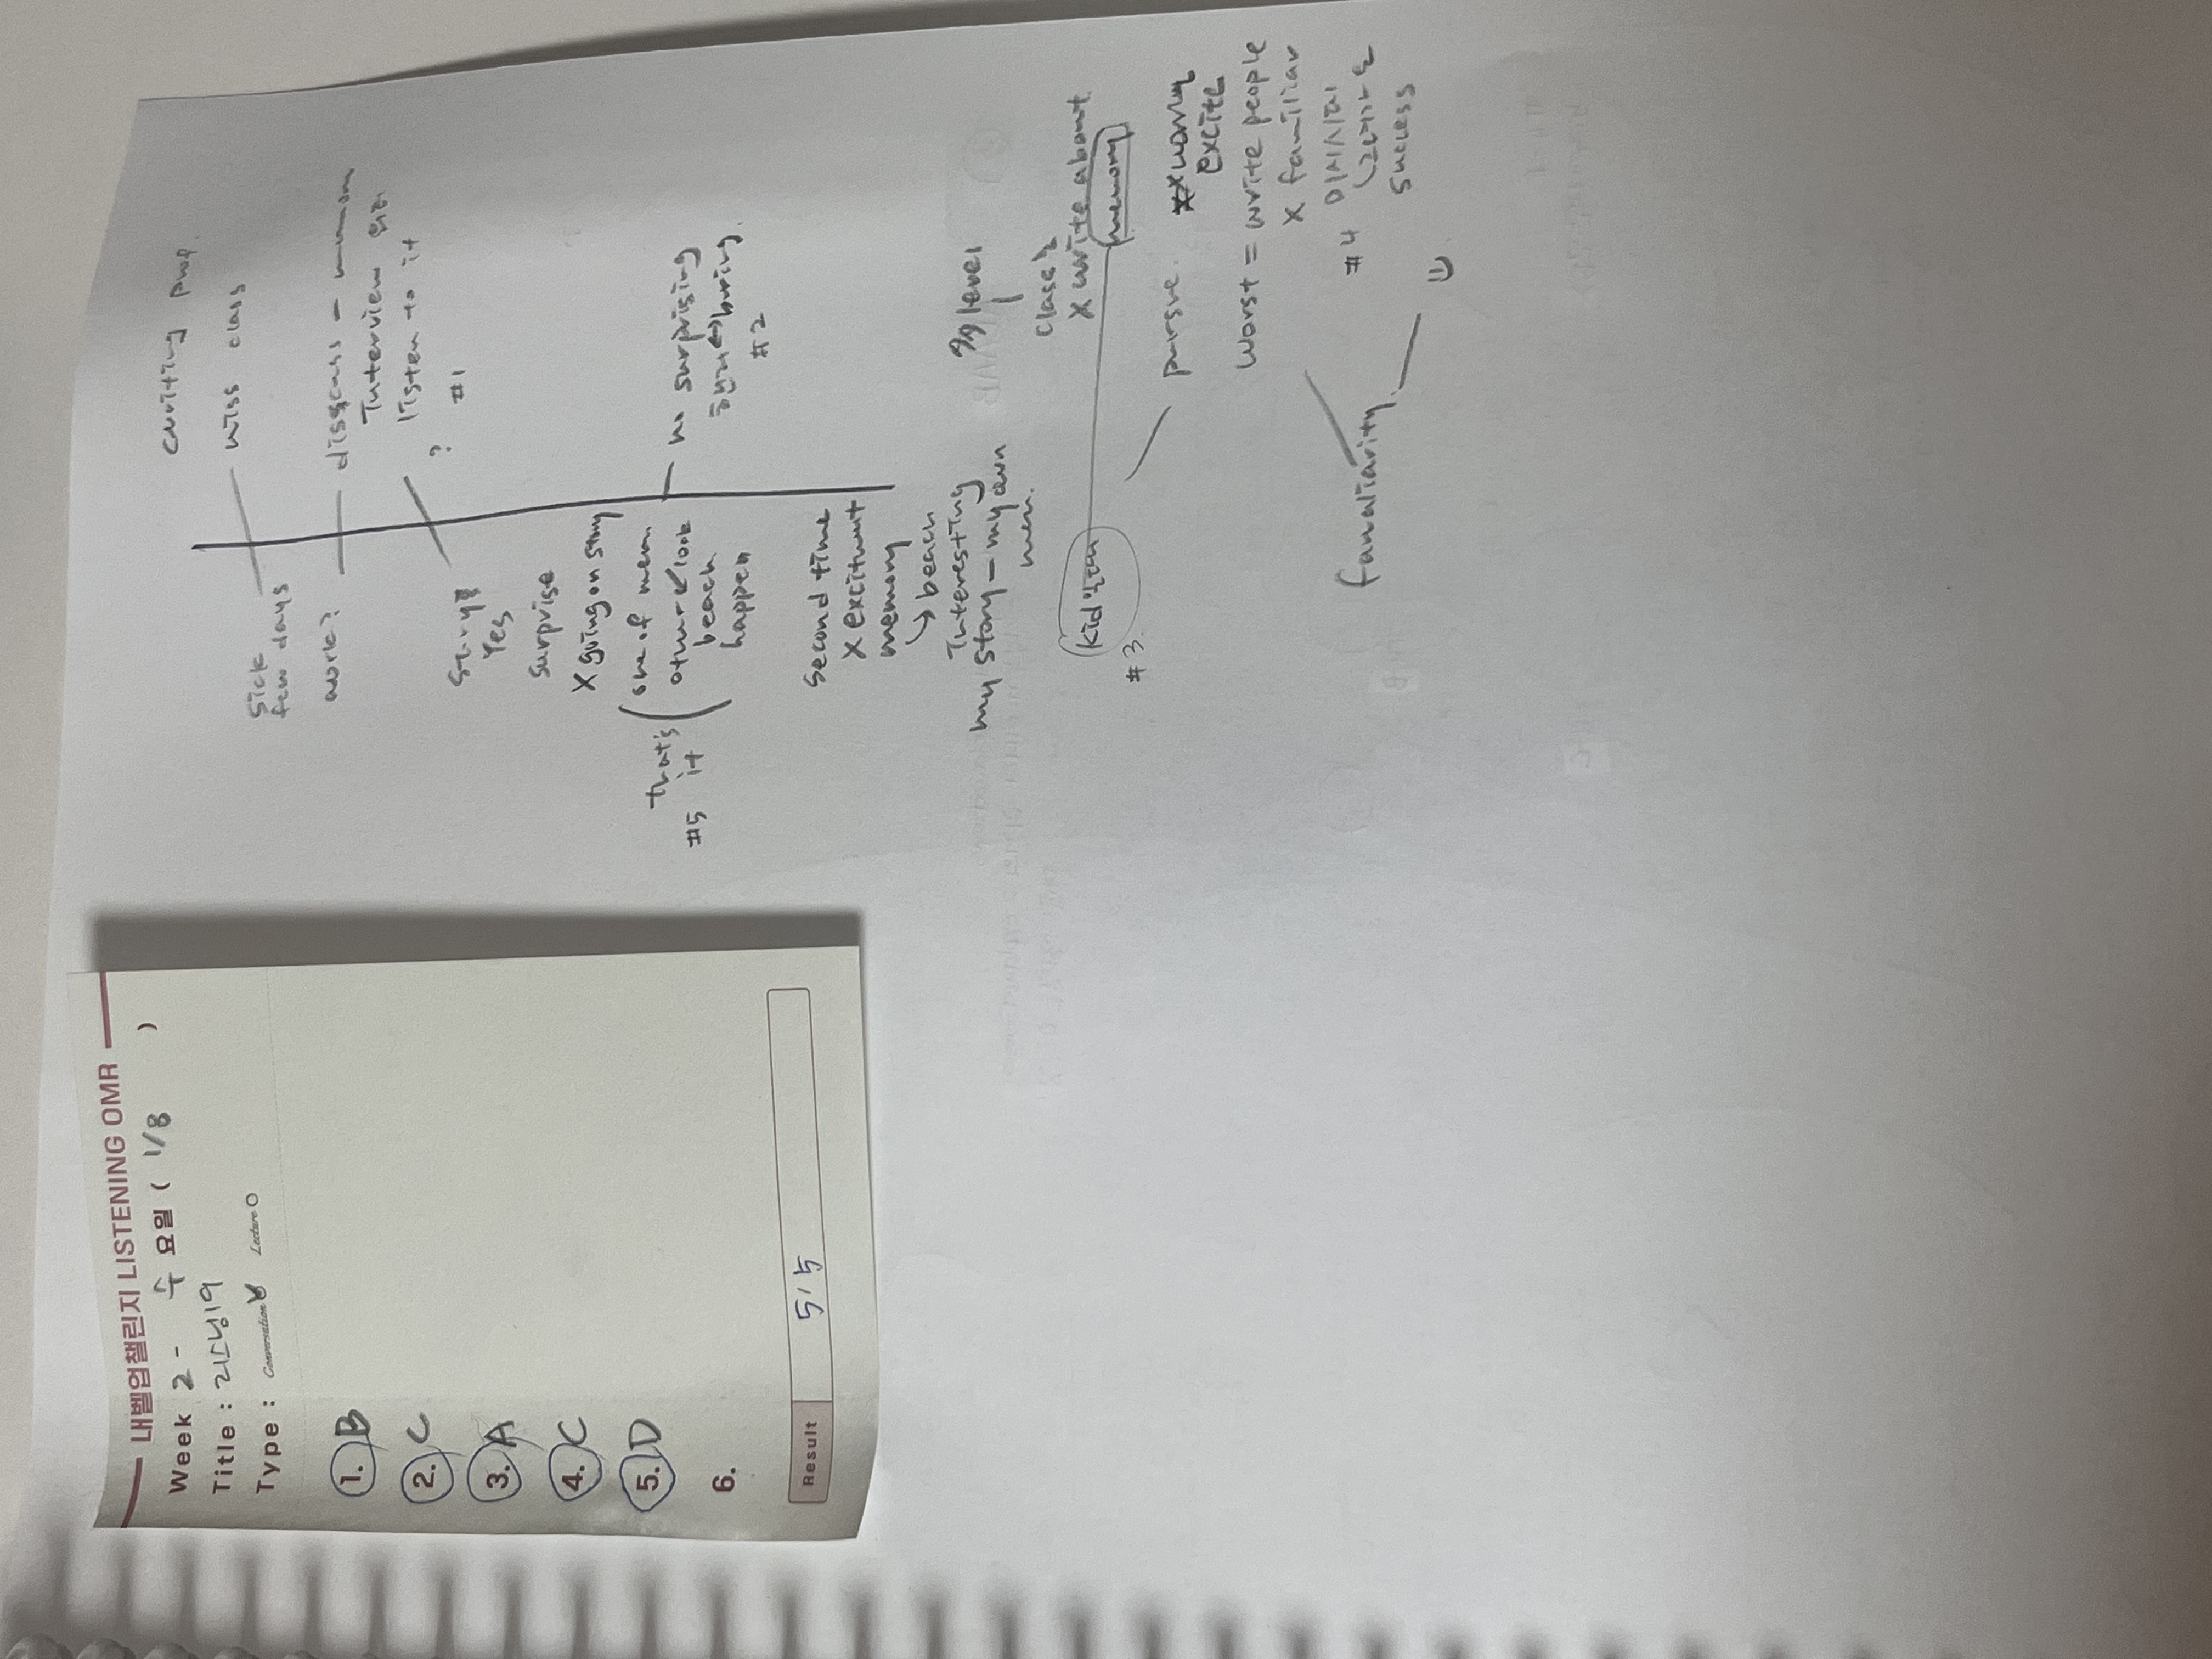 내벨업챌린지 LISTENING OMR
Week 2 - 수 요일 ( 1/8 )
Title : 리스닝19
Type : Conversation Lecture
1. B
2. C
3. A
4. C
5. D
6.
Result 5/5
writing prof.
sick
few days
miss class
work?
discuss -
Interview
listen to it
? #1
Yes
surprise
X going on story
one of mem.
other look
beach
happen
that's
it
#5
no surprising
boring.
#2
second time
X excitmnt
memory
↳ beach
Interesting
my story - my own
mem.
level
class
X write about
memory
kid
#3
pursue.
X worry
excite
worst = write people
X familiar
#4
success
familiarity.